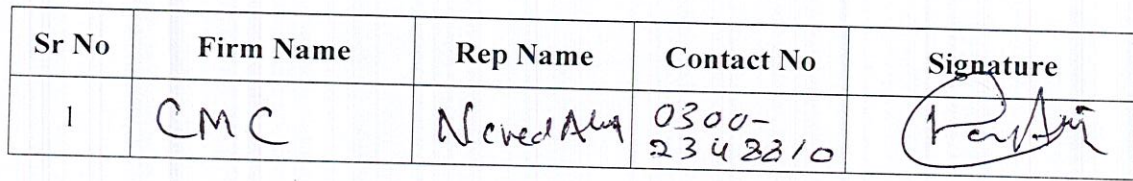 Sr No Firm Name Rep Name Contact No Signature
1 CMC Naved 0300-
2348810